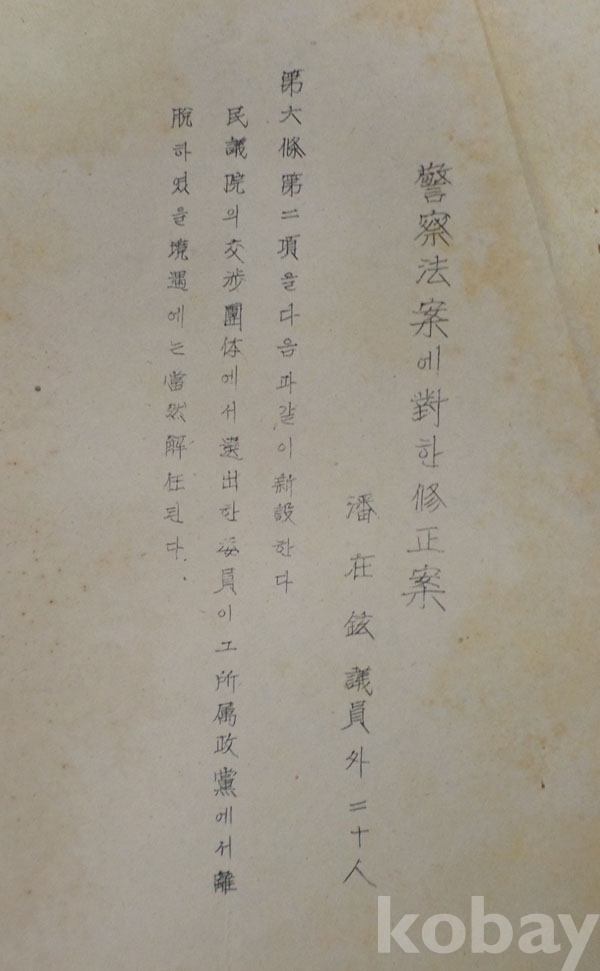 警察法案에對한修正案
潘在鉉議員外二十人
第六條第二項을다음과갈이新設한다
民議院의交涉團体에서選出한委員이그所属政黨에서離
脫하였을境遇에는當然解任된다.
kobay